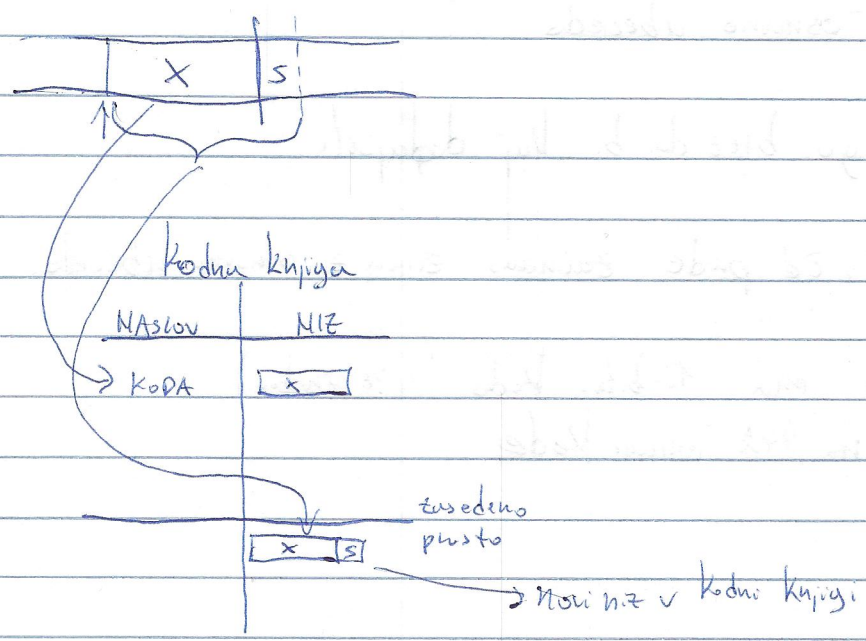 X S
Kodna knjiga
NASLOV NIZ
KODA X
zasedeno
prosto
X S
Novi niz v kodni knjigi